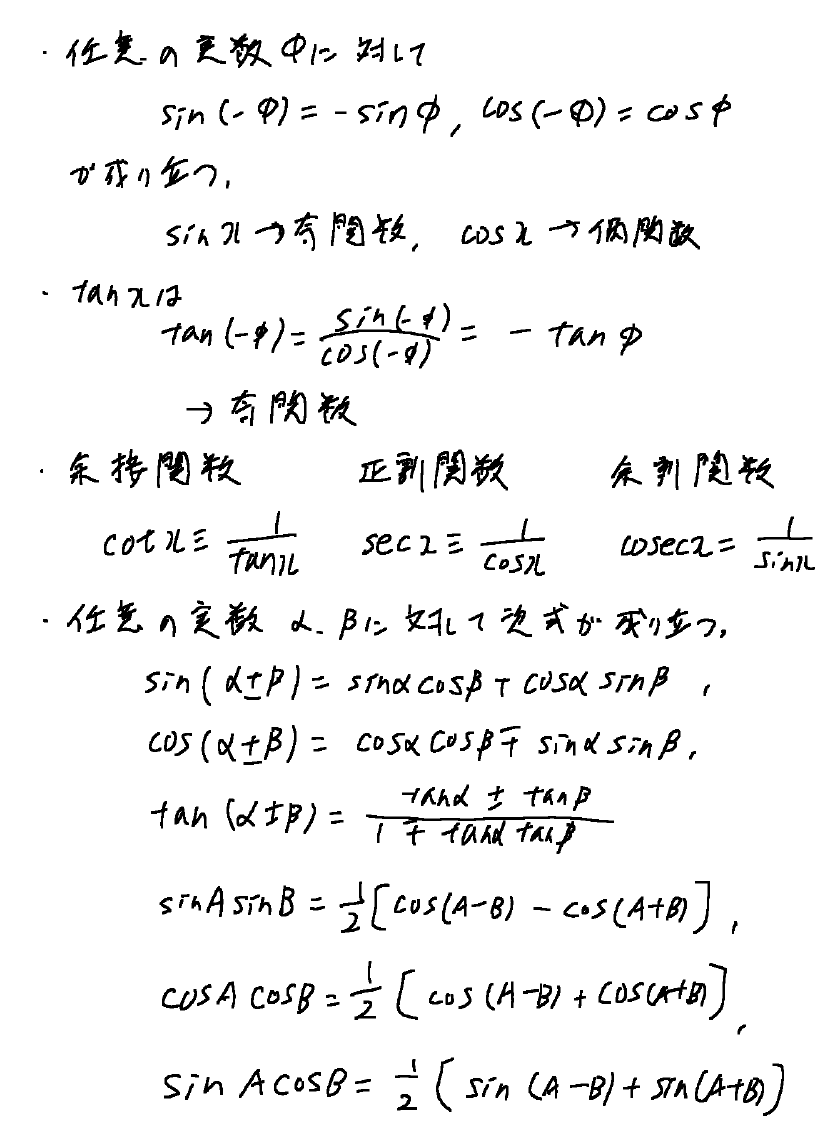 ・任意の実数φに対して
sin(-φ)=-sinφ, cos(-φ)=cosφ
が成り立つ.
sinx→奇関数, cosx→偶関数
・tanxは
tan(-φ)=\frac{sin(-φ)}{cos(-φ)}=-tanφ
→奇関数
・余接関数 正割関数 余割関数
cotx≡\frac{1}{tanx} secx≡\frac{1}{cosx} cosecx=\frac{1}{sinx}
・任意の実数α、βに対して次式が成り立つ.
sin(α±β)=sinαcosβ+cosαsinβ,
cos(α±β)=cosαcosβ∓sinαsinβ,
tan(α±β)=\frac{tanα±tanβ}{1∓tanαtanβ}
sinAsinB=\frac{1}{2}[cos(A-B)-cos(A+B)],
cosAcosB=\frac{1}{2}[cos(A-B)+cos(A+B)],
sinAcosB=\frac{1}{2}(sin(A-B)+sin(A+B)]